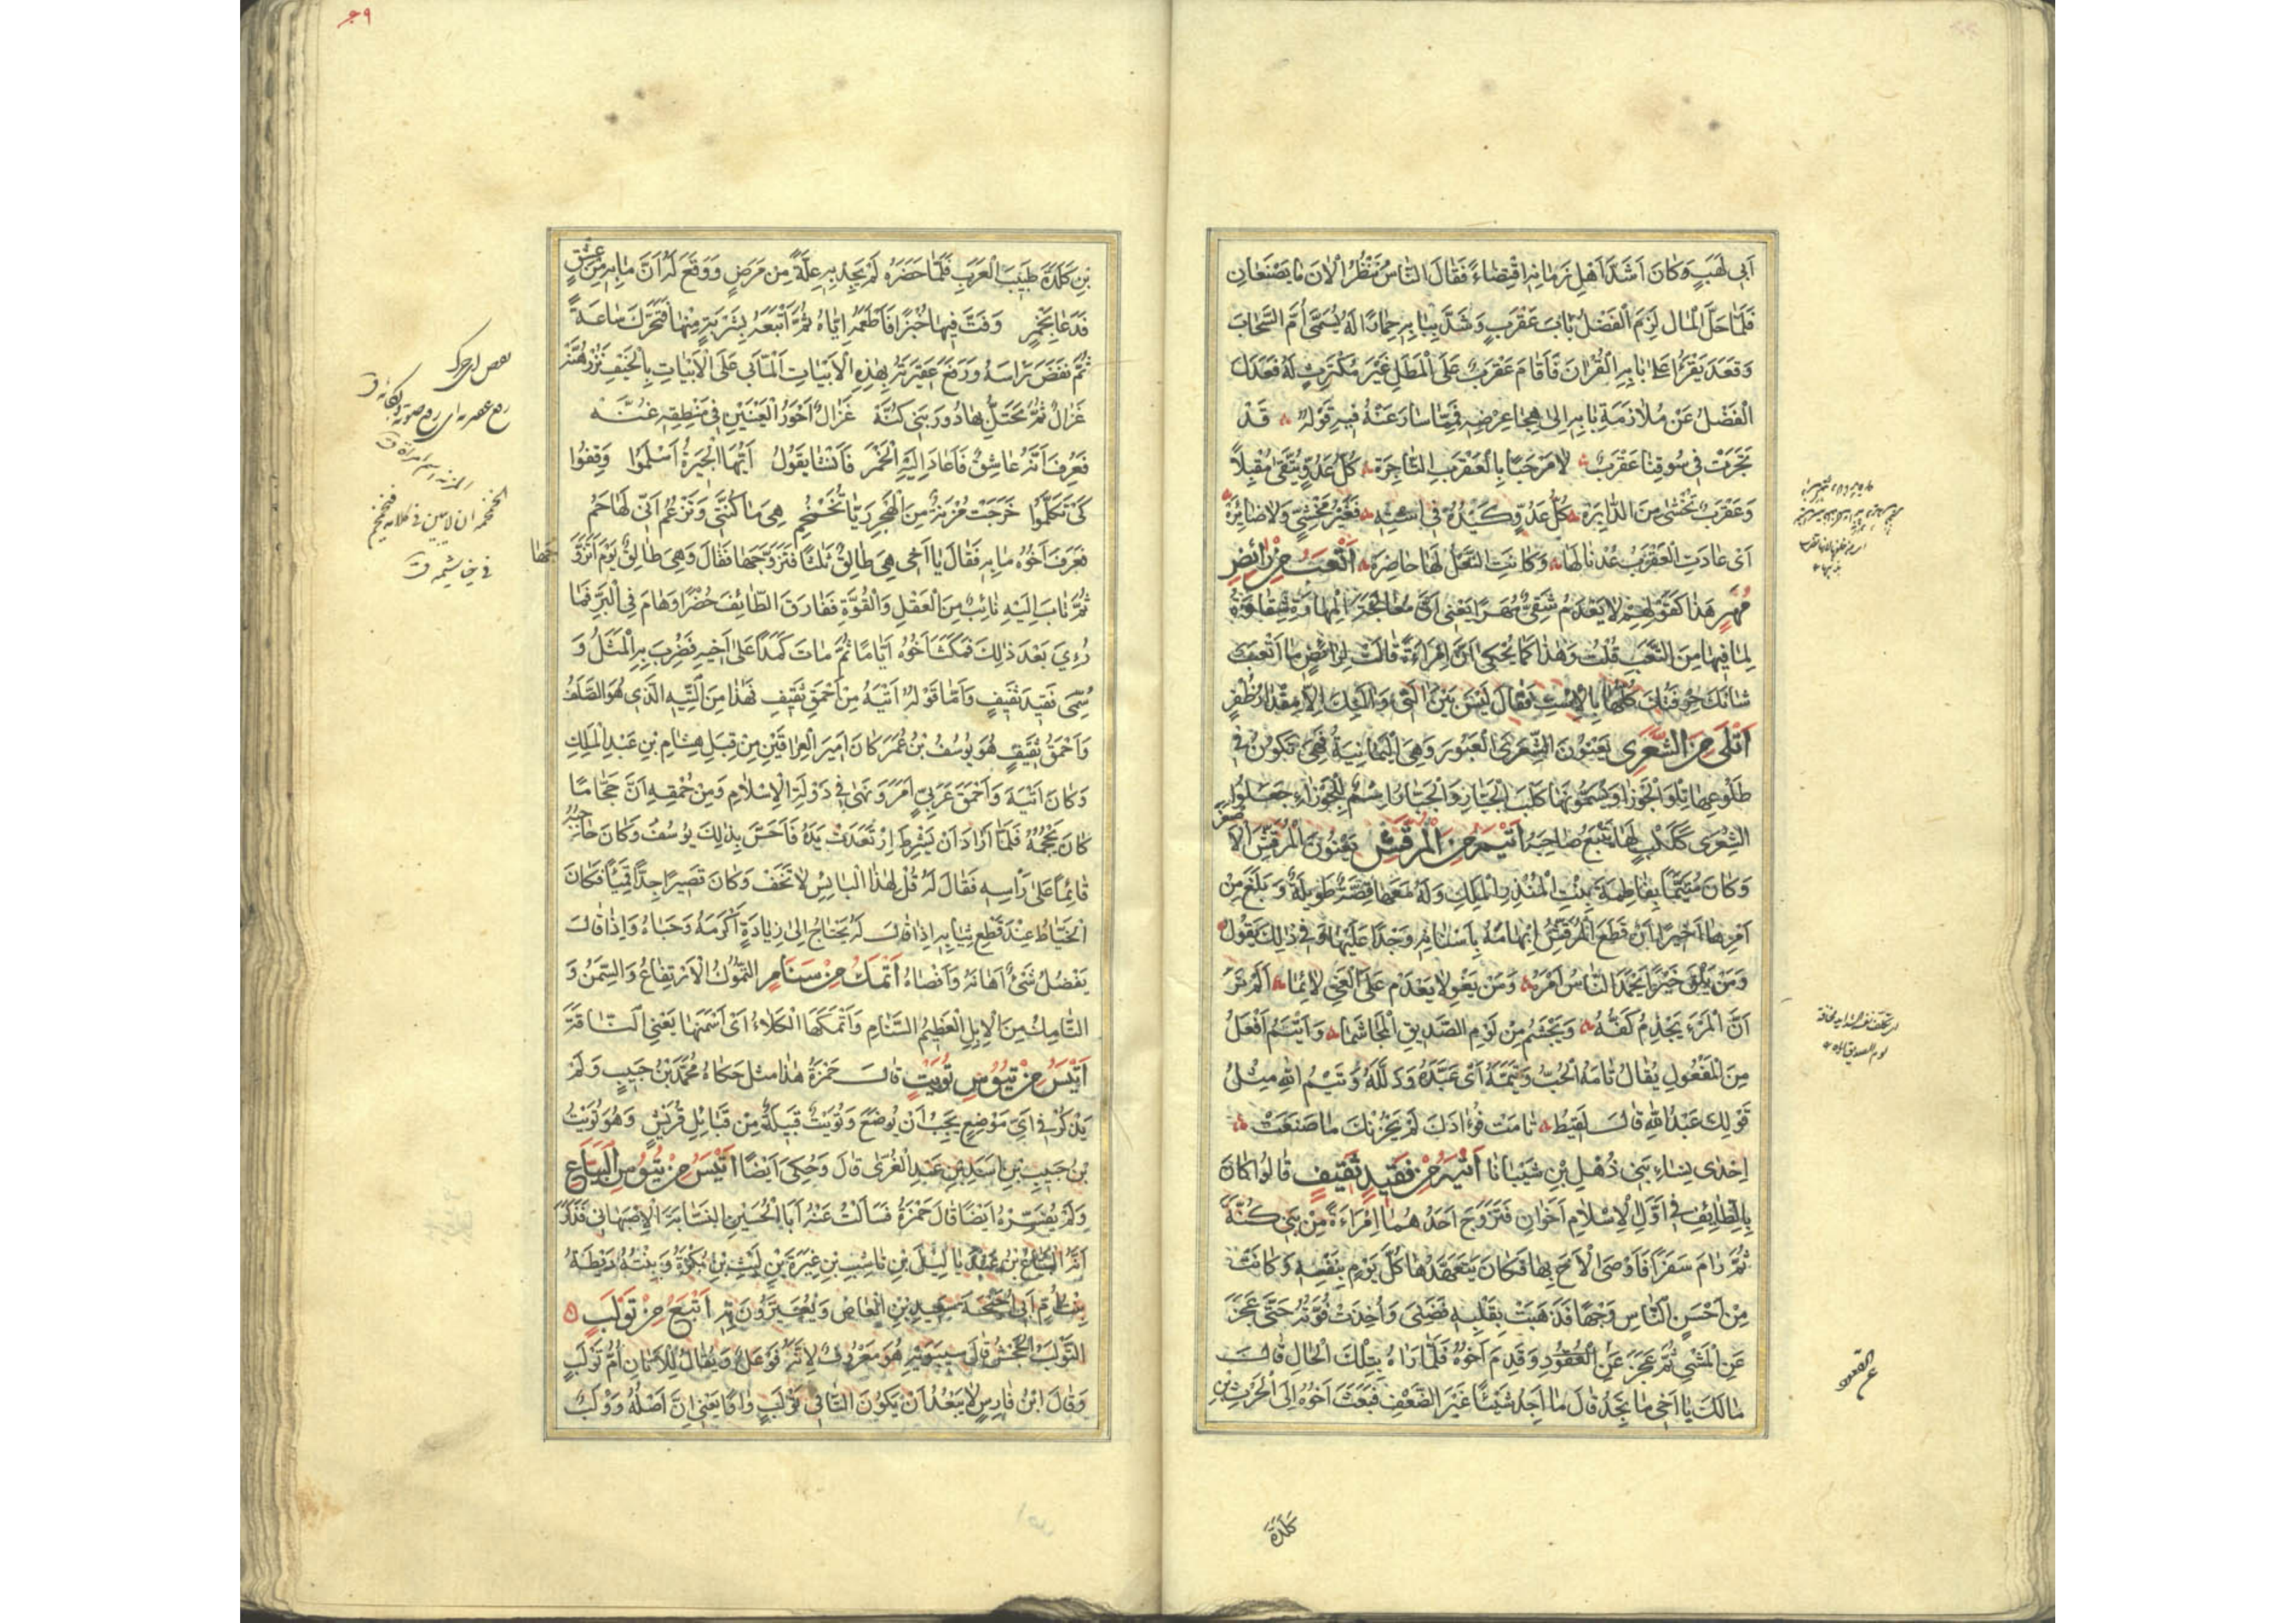 اَبي لَهَبٍ وَكانَ اَشَدَّ اَهْلِ زَمانِهِ اقْتِضاءً فَقالَ النّاسُ نَنْظُرُ الْاٰنَ ما يَصْنَعانِ
فَلَمّا حَلَّ الْمالُ لَزِمَ الْفَضْلُ بابَ عَقْرَبٍ وَشَدَّ بِبابِهِ حِمارًا لَهُ يُسَمّى اُمَّ السَّحابِ
وَقَعَدَ يَقْرَأُ عَلى بابِهِ الْقُرْاٰنَ فَاَقامَ عَقْرَبٌ عَلَى الْمَطَلِ غَيْرَ مُكْتَرِثٍ لَهُ فَعَدَلَ
الْفَضْلُ عَنْ مُلازَمَةِ بابِهِ اِلى هِجاءِ عِرْضِهِ فَمِمّا سارَ عَنْهُ فيهِ قَوْلُهُ قَدْ
تَجَرَتْ في سُوقِنا عَقْرَبٌ لا مَرْحَبًا بِالْعَقْرَبِ التّاجِرَةِ كُلُّ عَدُوٍّ يُتَّقى مُقْبِلًا
وَعَقْرَبٌ تُخْشى مِنَ الدّابِرَةِ كُلُّ عَدُوٍّ كَيْدُهُ في اسْتِهِ فَغَيْرُ مَخْشِيٍّ وَلا ضائِرَة
اِنْ عادَتِ الْعَقْرَبُ عُدْنا لَها وَكانَتِ النَّعْلُ لَها حاضِرَة اَتْعَبُ مِنْ رائِضِ
مُهْرٍ هذا كَقَوْلِهِمْ لا يَعْدَمُ شَقِيٌّ مُهَرًا يَعْني اَنَّ مُعالَجَةَ الْمِهارَةِ شَقاوَةٌ
لِما فيها مِنَ التَّعَبِ قُلْتُ وَهٰذا كَما يُحْكى اَنَّ اِمْرَاَةً قالَتْ لِرائِضٍ ما اَتْعَبَ
شانَكَ حِرْفَتُكَ كُلُّها بِالْاِسْتِ فَقالَ لَيْسَ بَيْنَ اٰلَتي وَاٰلَتِكِ اِلّا مِقْدارُ ظُفْرٍ
اَتْلى مِنَ الشِّعْرى يَعْنُونَ الشِّعْرَى الْعَبُورَ وَهِيَ الْيَمانِيَةُ فَهِيَ تَكونُ في
طُلُوعِها تِلْوَ الْجَوْزاءِ وَيُسَمُّونَها كَلْبَ الْجَبّارِ وَالْجَبّارُ اسْمٌ لِلْجَوْزاءِ جَعَلُوا
الشِّعْرى كَكَلْبٍ لَها يَتْبَعُ صاحِبَهُ اَتْيَمُ مِنَ الْمُرَقِّشِ يَعْنُونَ الْمُرَقِّشَ الْاَصْغَرَ
وَكانَ مُتَيَّمًا بِفاطِمَةَ بِنْتِ الْمُنْذِرِ الْمَلِكِ وَلَهُ مَعَها قِصَّةٌ طَويلَةٌ وَبَلَغَ مِنْ
اَمْرِها اَخيرًا اَنْ قَطَعَ الْمُرَقِّشُ اِبْهامَهُ بِاَسْنانِهِ وَجْدًا عَلَيْها وَفي ذٰلِكَ يَقُولُ
وَمَنْ يَلْقَ خَيْرًا يَحْمَدِ النّاسُ اَمْرَهُ وَمَنْ يَغْوِ لا يَعْدَمْ عَلَى الْغَيِّ لائِما اَلَمْ تَرَ
اَنَّ الْمَرْءَ يَجْذِمُ كَفَّهُ وَيَجْشَمُ مِنْ لَوْمِ الصَّديقِ الْمَجاشِما وَاَتْيَمُ اَفْعَلُ
مِنَ الْمَفْعُولِ يُقالُ تامَهُ الْحُبُّ وَتَيَّمَهُ اَيْ عَبَّدَهُ وَذَلَّلَهُ وَتَيْمُ اللهِ مِثْلُ
قَوْلِكَ عَبْدُ اللهِ قالَ لَقيطٌ تامَتْ فُؤادَكَ لَمْ يَحْزُنْكَ ما صَنَعَتْ
اِحْدى نِساءِ بَني ذُهْلِ بْنِ شَيْبانا اَتْيَهُ مِنْ فَقيدِ ثَقيفٍ قالُوا كانَ
بِالطّائِفِ في اَوَّلِ الْاِسْلامِ اَخَوانِ فَتَزَوَّجَ اَحَدُهُما اِمْرَاَةً مِنْ بَني كُنَّةَ
ثُمَّ رامَ سَفَرًا فَاَوْصَى الْاَخَ بِها فَكانَ يَتَعَهَّدُها كُلَّ يَوْمٍ بِنَفْسِهِ وَكانَتْ
مِنْ اَحْسَنِ النّاسِ وَجْهًا فَذَهَبَتْ بِقَلْبِهِ فَضَنِيَ وَاُخِذَتْ قُوَّتُهُ حَتّى عَجَزَ
عَنِ الْمَشْيِ ثُمَّ عَجَزَ عَنِ الْقُعُودِ وَقَدِمَ اَخُوهُ فَلَمّا رَاٰهُ بِتِلْكَ الْحالِ قالَ
مالَكَ يا اَخي ما تَجِدُ قالَ ما اَجِدُ شَيْئًا غَيْرَ الضَّعْفِ فَبَعَثَ اَخُوهُ اِلَى الْحَرِثِ بْنِ
كَلَدَةَ
٦٩
بْنِ كَلَدَةَ طَبيبِ الْعَرَبِ فَلَمّا حَضَرَهُ لَمْ يَجِدْ بِهِ عِلَّةً مِنْ مَرَضٍ وَوَقَعَ لَهُ اَنَّ ما بِهِ مِنْ عِشْقٍ
فَدَعا بِخَمْرٍ وَفَتَّ فيها خُبْزًا فَاَطْعَمَهُ اِيّاهُ ثُمَّ اَتْبَعَهُ بِشَرْبَةٍ مِنْها فَتَحَرَّكَ ساعَةً
ثُمَّ نَغَضَ رَاْسَهُ وَرَفَعَ عَقيرَتَهُ بِهٰذِهِ الْاَبْياتِ اَلِمّا بي عَلَى الْاَبْياتِ بِالْخَيْفِ نَزُرْهُنَّهْ
غَزالٌ ثَمَّ يَحْتَلُّ بِها دُورَ بَني كُنَّهْ غَزالٌ اَحْوَرُ الْعَيْنَيْنِ في مَنْطِقِهِ غُنَّهْ
فَعَرَفَ اَنَّهُ عاشِقٌ فَاَعادَ اِلَيْهِ الْخَمْرَ فَاَنْشَا يَقُولُ اَيُّهَا الْجيرَةُ اسْلَمُوا وَقِفُوا
كَيْ تَكَلَّمُوا خَرَجَتْ مُزْنَةٌ مِنَ الْبَحْرِ رَيّا تُحَمْحِمُ هِيَ ما كَنَّتي وَتَزْعُمُ اَنّي لَها حَمُ
فَعَرَفَ اَخُوهُ ما بِهِ فَقالَ يا اَخي هِيَ طالِقٌ ثَلٰثًا فَتَزَوَّجْها فَقالَ وَهِيَ طالِقٌ يَوْمَ اَتَزَوَّجُها
ثُمَّ ثابَ اِلَيْهِ ثائِبٌ مِنَ الْعَقْلِ وَالْقُوَّةِ فَفارَقَ الطّائِفَ حُضْرًا وَهامَ فِي الْبَرِّ فَما
رُءِيَ بَعْدَ ذٰلِكَ فَمَكَثَ اَخُوهُ اَيّامًا ثُمَّ ماتَ كَمَدًا عَلى اَخيهِ فَضُرِبَ بِهِ الْمَثَلُ وَ
سُمِّيَ فَقيدَ ثَقيفٍ وَاَمّا قَوْلُهُ اَتْيَهُ مِنْ اَحْمَقِ ثَقيفٍ فَهٰذا مِنَ التّيهِ الَّذي هُوَ الصَّلَفُ
وَاَحْمَقُ ثَقيفٍ هُوَ يُوسُفُ بْنُ عُمَرَ كانَ اَميرَ الْعِراقَيْنِ مِنْ قِبَلِ هِشامِ بْنِ عَبْدِ الْمَلِكِ
وَكانَ اَتْيَهَ وَاَحْمَقَ عَرَبِيٍّ اَمَرَ وَنَهى في دَوْلَةِ الْاِسْلامِ وَمِنْ حُمْقِهِ اَنَّ حَجّامًا
كانَ يَحْجُمُهُ فَلَمّا اَرادَ اَنْ يَشْرِطَ اِرْتَعَدَتْ يَدُهُ فَاَحَسَّ بِذٰلِكَ يُوسُفُ وَكانَ حاجِبُهُ
قائِمًا عَلى رَاْسِهِ فَقالَ لَهُ قُلْ لِهٰذَا الْبائِسِ لا تَخَفْ وَكانَ قَصيرًا جِدًّا قَميئًا فَكانَ
الْخَيّاطُ عِنْدَ قَطْعِ ثِيابِهِ اِذا قالَ لَهُ يَحْتاجُ اِلى زِيادَةٍ اَكْرَمَهُ وَحَباهُ وَاِذا قالَ
يَفْضُلُ شَيْءٌ اَهانَهُ وَاَقْصاهُ اَتْمَكُ مِنْ سَنامٍ التُّمُوكُ الْاِرْتِفاعُ وَالسِّمَنُ وَ
التّامِكُ مِنَ الْاِبِلِ الْعَظيمُ السَّنامِ وَاَتْمَكَهَا الْكَلَاءُ اَيْ اَسْمَنَها يَعْنِي النّاقَةَ
اَتْيَسُ مِنْ تُيُوسِ تُوَيْتٍ قالَ حَمْزَةُ هٰذا مثل حَكاهُ مُحَمَّدُ بْنُ حَبيبٍ وَلَمْ
يَذْكُرْ في اَيِّ مَوْضِعٍ يَجِبُ اَنْ يُوضَعَ وَتُوَيْتٌ قَبيلَةٌ مِنْ قَبائِلِ قُرَيْشٍ وَهُوَ تُوَيْتُ
بْنُ حَبيبِ بْنِ اَسَدِ بْنِ عَبْدِ الْعُزّى قالَ وَحُكِيَ اَيْضًا اَتْيَسُ مِنْ تُيُوسِ الْبَيّاعِ
وَلَمْ يُفَسِّرْهُ اَيْضًا قالَ حَمْزَةُ فَسَاَلْتُ عَنْهُ اَبَا الْحُسَيْنِ النَّسّابَةَ الْاِصْبَهانِيَّ فَذَكَرَ
اَنَّهُ الْبَيّاعُ بْنُ عَبْدِ يا ليلَ بْنِ ناشِبِ بْنِ غِيَرَةَ بْنِ لَيْثِ بْنِ بَكْرٍ وَبِنْتُهُ رَيْطَةُ
اُمِّ اَبي اُحَيْحَةَ سَعيدِ بْنِ الْعاصِ وَيُعَيَّرُونَ بِهِ اَتْبَعُ مِنْ تَوْلَبٍ
التَّوْلَبُ الْجَحْشُ قالَ سيبَوَيْهِ هُوَ مَصْرُوفٌ لِاَنَّهُ فَوْعَلٌ وَيُقالُ لِلْاَتانِ اُمُّ تَوْلَبٍ
وَقالَ ابْنُ فارِسٍ لا يَبْعُدُ اَنْ يَكُونَ التّاءُ في تَوْلَبٍ واوًا يَعْني اِنَّ اَصْلَهُ وَوْلَبٌ